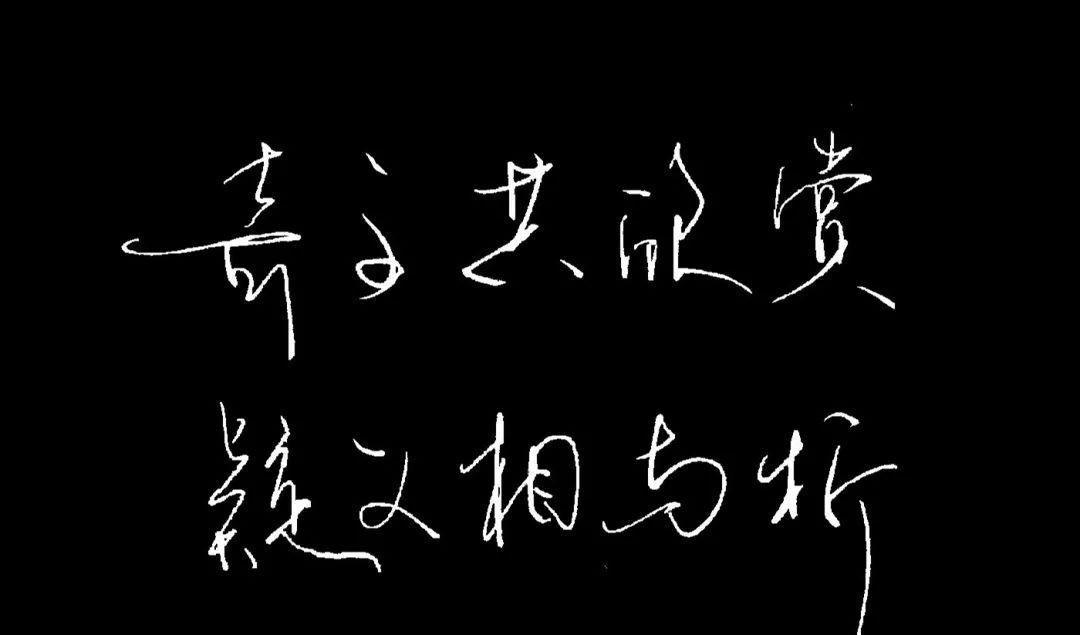 奇文共欣赏
疑义相与析